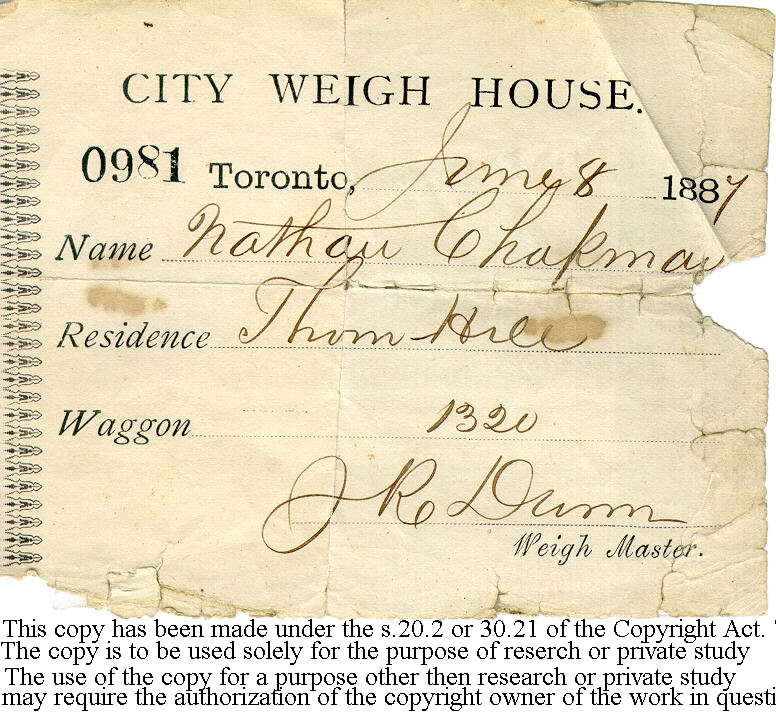 CITY WEIGH HOUSE.
0981 Toronto, June 8 1887
Name Nathan Chapman
Residence Thorn Hill
Waggon 1320
J R Dunn
Weigh Master.
This copy has been made under the s.20.2 or 30.21 of the Copyright Act.
The copy is to be used solely for the purpose of reserch or private study
The use of the copy for a purpose other then research or private study
may require the authorization of the copyright owner of the work in questi